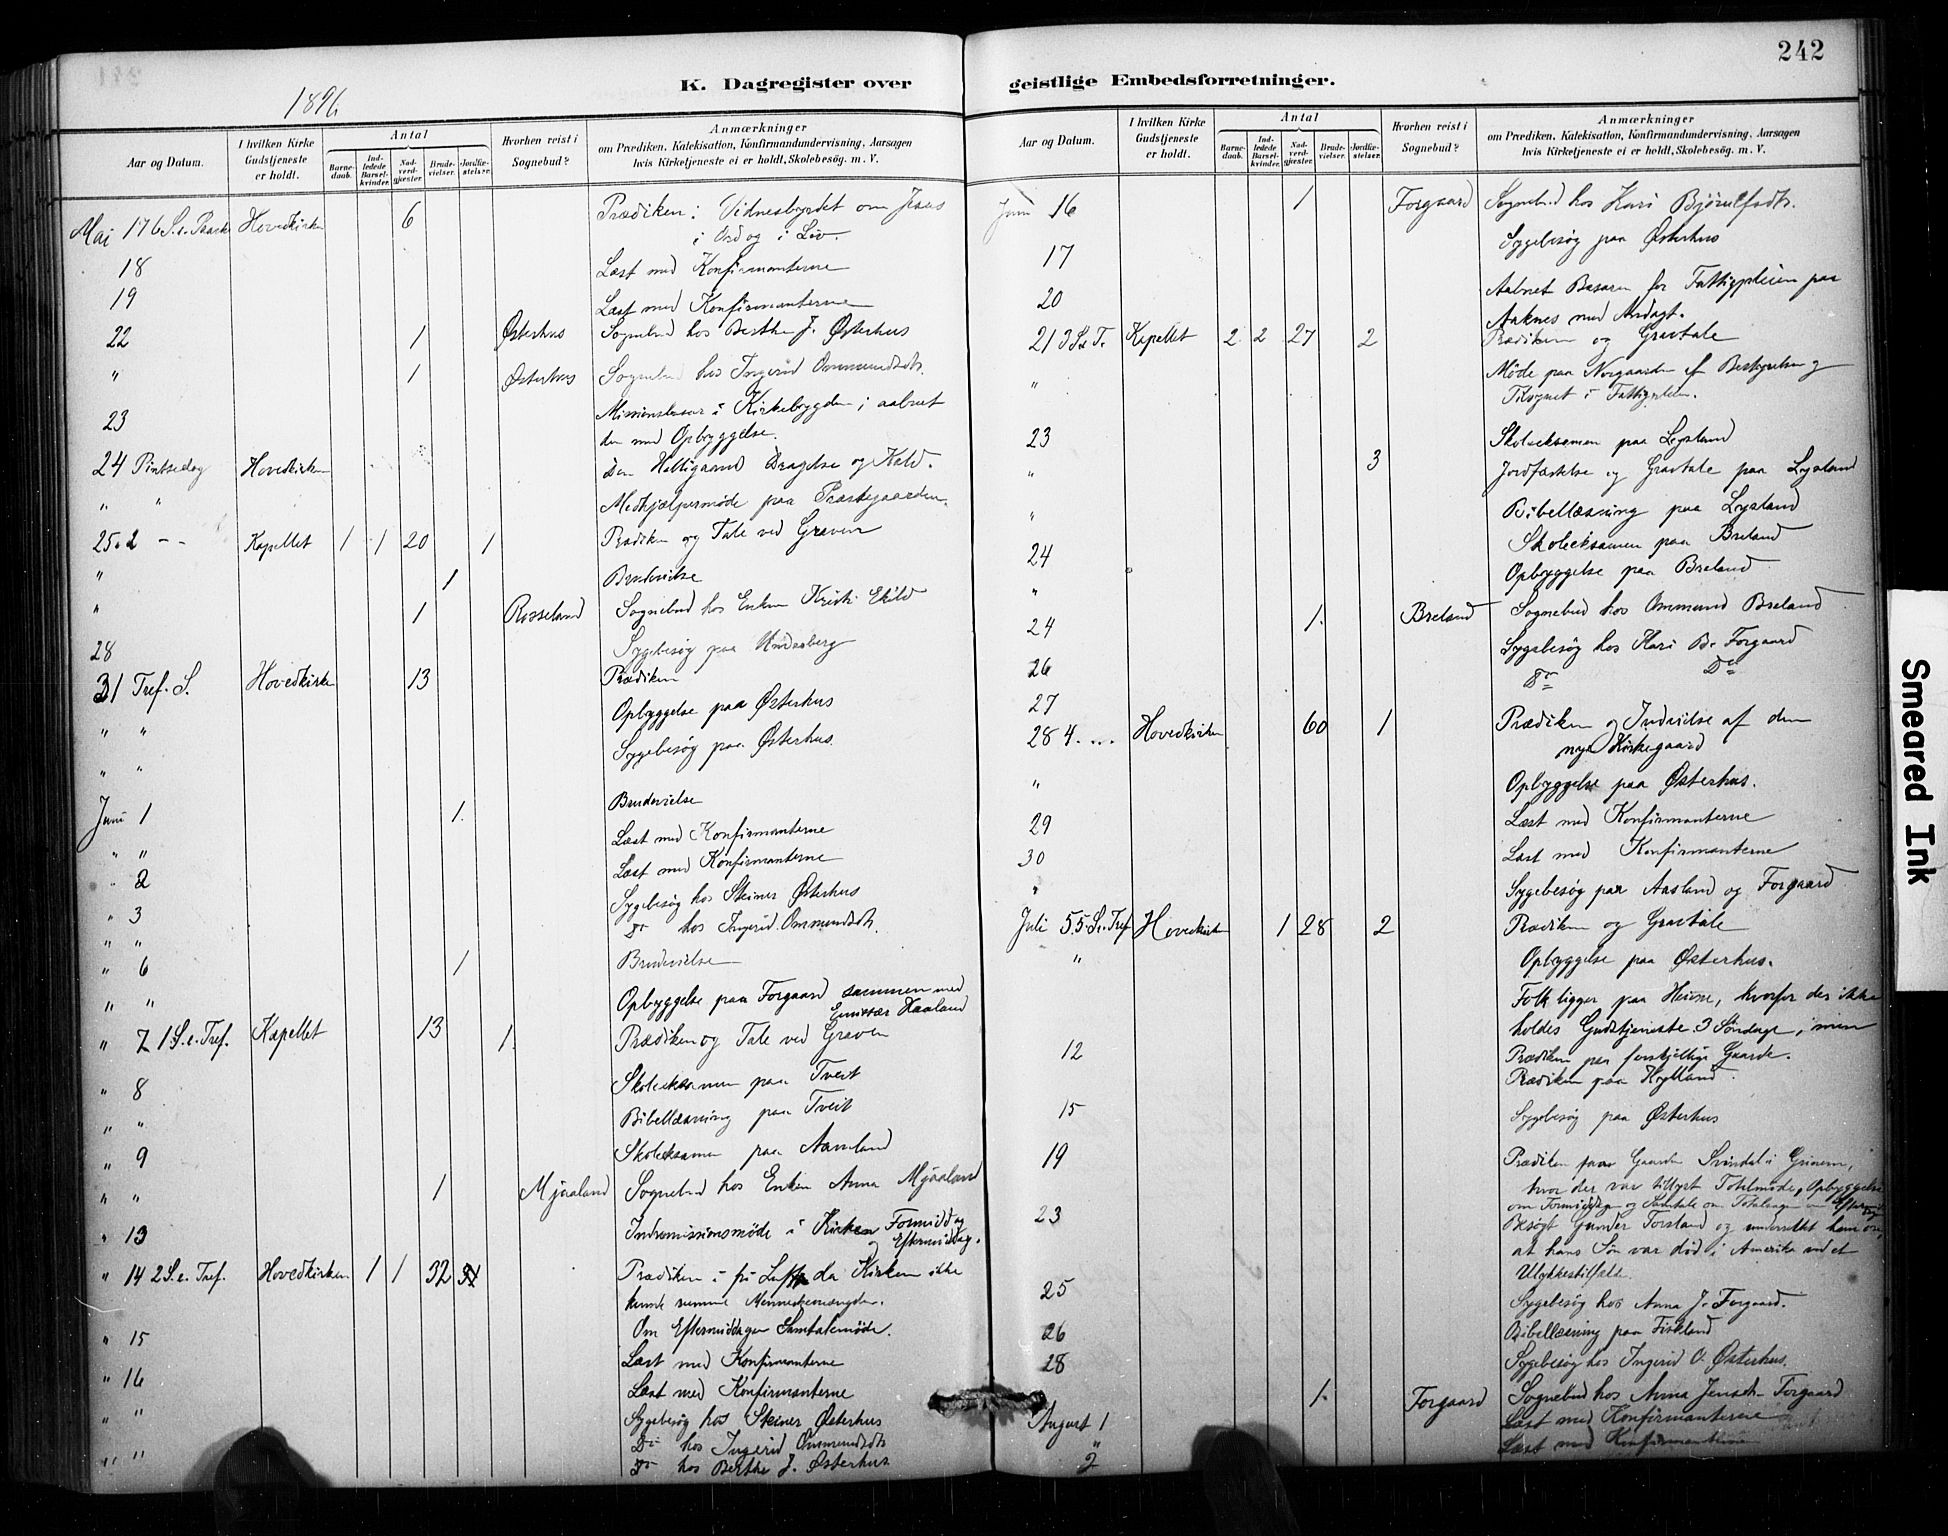 242
K. Dagregister over geistlige Embedsforretninger.
1896
Aar og Datum.
I hvilken Kirke Gudstjeneste er holdt.
Antal
Barnedaab.
Indledede Barselkvinder.
Nadverdgjester.
Brudevielser.
Jordfæstelser.
Hvorhen reist i Sognebud?
Anmærkninger
om Prædiken, Katekisation, Konfirmandundervisning, Aarsagen
hvis Kirketjeneste ei er holdt, Skolebesøg. m. V.
Mai 17 6 S. e. Paask Hovedkirken 6 Prædiken: Vidnesbyrdet om Jesus
i Ord og i Liv.
18 Læst med Konfirmanterne
19 Læst med Konfirmanterne
22 1 Østerhus Sognebud hos Berthe J. Østerhus
" 1 Østerhus Sognebud hos Ingerid Ommundsdt.
23 Missionsbasar i Kirkebygden; aabnet
den med Opbyggelse.
24 Pintsedag Hovedkirken Den Helligaands Dragelse og Kald.
" " Medhjælpermøde paa Præstegaarden.
25. 2 - - Kapellet 1 1 20 1 Prædiken og Tale ved Graven
" 1 Brudevielse
" 1 Rosseland Sognebud hos Enken Kristi Ekild
28 Sygebesøg paa
31 Tref. S. Hovedkirken 13 Prædiken
" " Opbyggelse paa Østerhus
" " Sygebesøg paa Østerhus.
Juni 1 1. Brudevielse
" " Læst med Konfirmanterne
" 2 Læst med Konfirmanterne
" 3 Sygebesøg hos Steiner Østerhus
" " Do hos Ingerid Ommundsdt.
" 6 1 Brudevielse
" " Opbyggelse paa Forgaard sammen med
Emissær Haaland
" 7 1. S. e. Tref. Kapellet 13 1. Prædiken og Tale ved Graven
" 8 Skoleeksamen paa Tveit
" " Bibellæsning paa Tveit
" 9 Skoleeksamen paa Aamland
" " 1 Mjaaland Sognebud hos Enken Anna Mjaaland
" 13 Indremissionsmøde i Kirken Formiddag
og Eftermiddag.
" 14 2 S. e. Tref. Hovedkirken 1 1 32 Prædiken i fri Luft, da Kirken ikke
kunde rumme Menneskemængden.
" 15 Om Eftermiddagen Samtalemøde.
" 16 Læst med Konfirmanterne
Læst med Konfirmanterne
" " Sygebesøg hos Steiner Østerhus
Do hos Ingerid Ommundsdt
" " Do hos Berthe J. Østerhus
Aar og Datum.
I hvilken Kirke Gudstjeneste er holdt.
Antal
Barnedaab.
Indledede Barselkvinder.
Nadverdgjester.
Brudevielser.
Jordfæstelser.
Hvorhen reist i Sognebud?
Anmærkninger
om Prædiken, Katekisation, Konfirmandundervisning, Aarsagen
hvis Kirketjeneste ei er holdt, Skolebesøg. m. V.
Juni 16 1 Forgaard Sognebud hos Kari Bjørulfsdt.
17 Sygebesøg paa Østerhus
20 Aabnet Basaren for Fattigpleien paa
Aaknes med Andagt.
21 3 S. e. T. Kapellet 2 2 27 2 Prædiken og Gravtale
" Møde paa Norgaarden af Bestyrelsen og
Tilsynet i Fattigpleien.
23 Skoleeksamen paa Lysland
" 3 Jordfæstelse og Gravtale paa Lysland
" Bibellæsning paa Lysland
24 Skoleeksamen paa Breland
" Opbyggelse paa Breland
24 1. Breland Sognebud hos Ommund Breland
26 Sygebesøg hos Kari B. Forgaard
27 Do Do
28 4. ... Hovedkirken 60 1 Prædiken og Indvielse af den
nye Kirkegaard
" Opbyggelse paa Østerhus.
29 Læst med Konfirmanterne
30 Læst med Konfirmanterne
" Sygebesøg paa Aasland og Forgaard
Juli 5 5. S. e. Tref Hovedkirk 1 28 2 Prædiken og Gravtale
" Opbyggelse paa Østerhus.
Folk ligger paa Heierne, hvorfor der ikke
holdes Gudstjeneste 3 Søndage, men
12 Prædiken paa forskjellige Gaarde.
Prædiken paa Hylland.
15 Sygebesøg paa Østerhus
19 Prædiken paa Gaarden Svindal i Grinem,
hvor der var tillyst Totalmøde, Opbyggelse
om Formiddagen og Samtale om Totalsagen om Eftermiddag
23 Besøgt Gunder Torsland og underrettet ham om,
at hans Søn var død i Amerika ved et
Ulykkestilfælde.
25 Sygebesøg hos Anna J. Forgaard.
26 Bibellæsning paa Fiskland
28 Sygebesøg hos Ingerid O. Østerhus.
1. Forgaard Sognebud hos Anna Jensdt. Forgaard
August 1 Læst med Konfirmanterne
" 2 Læst med Konfirmanterne
Smeared Ink